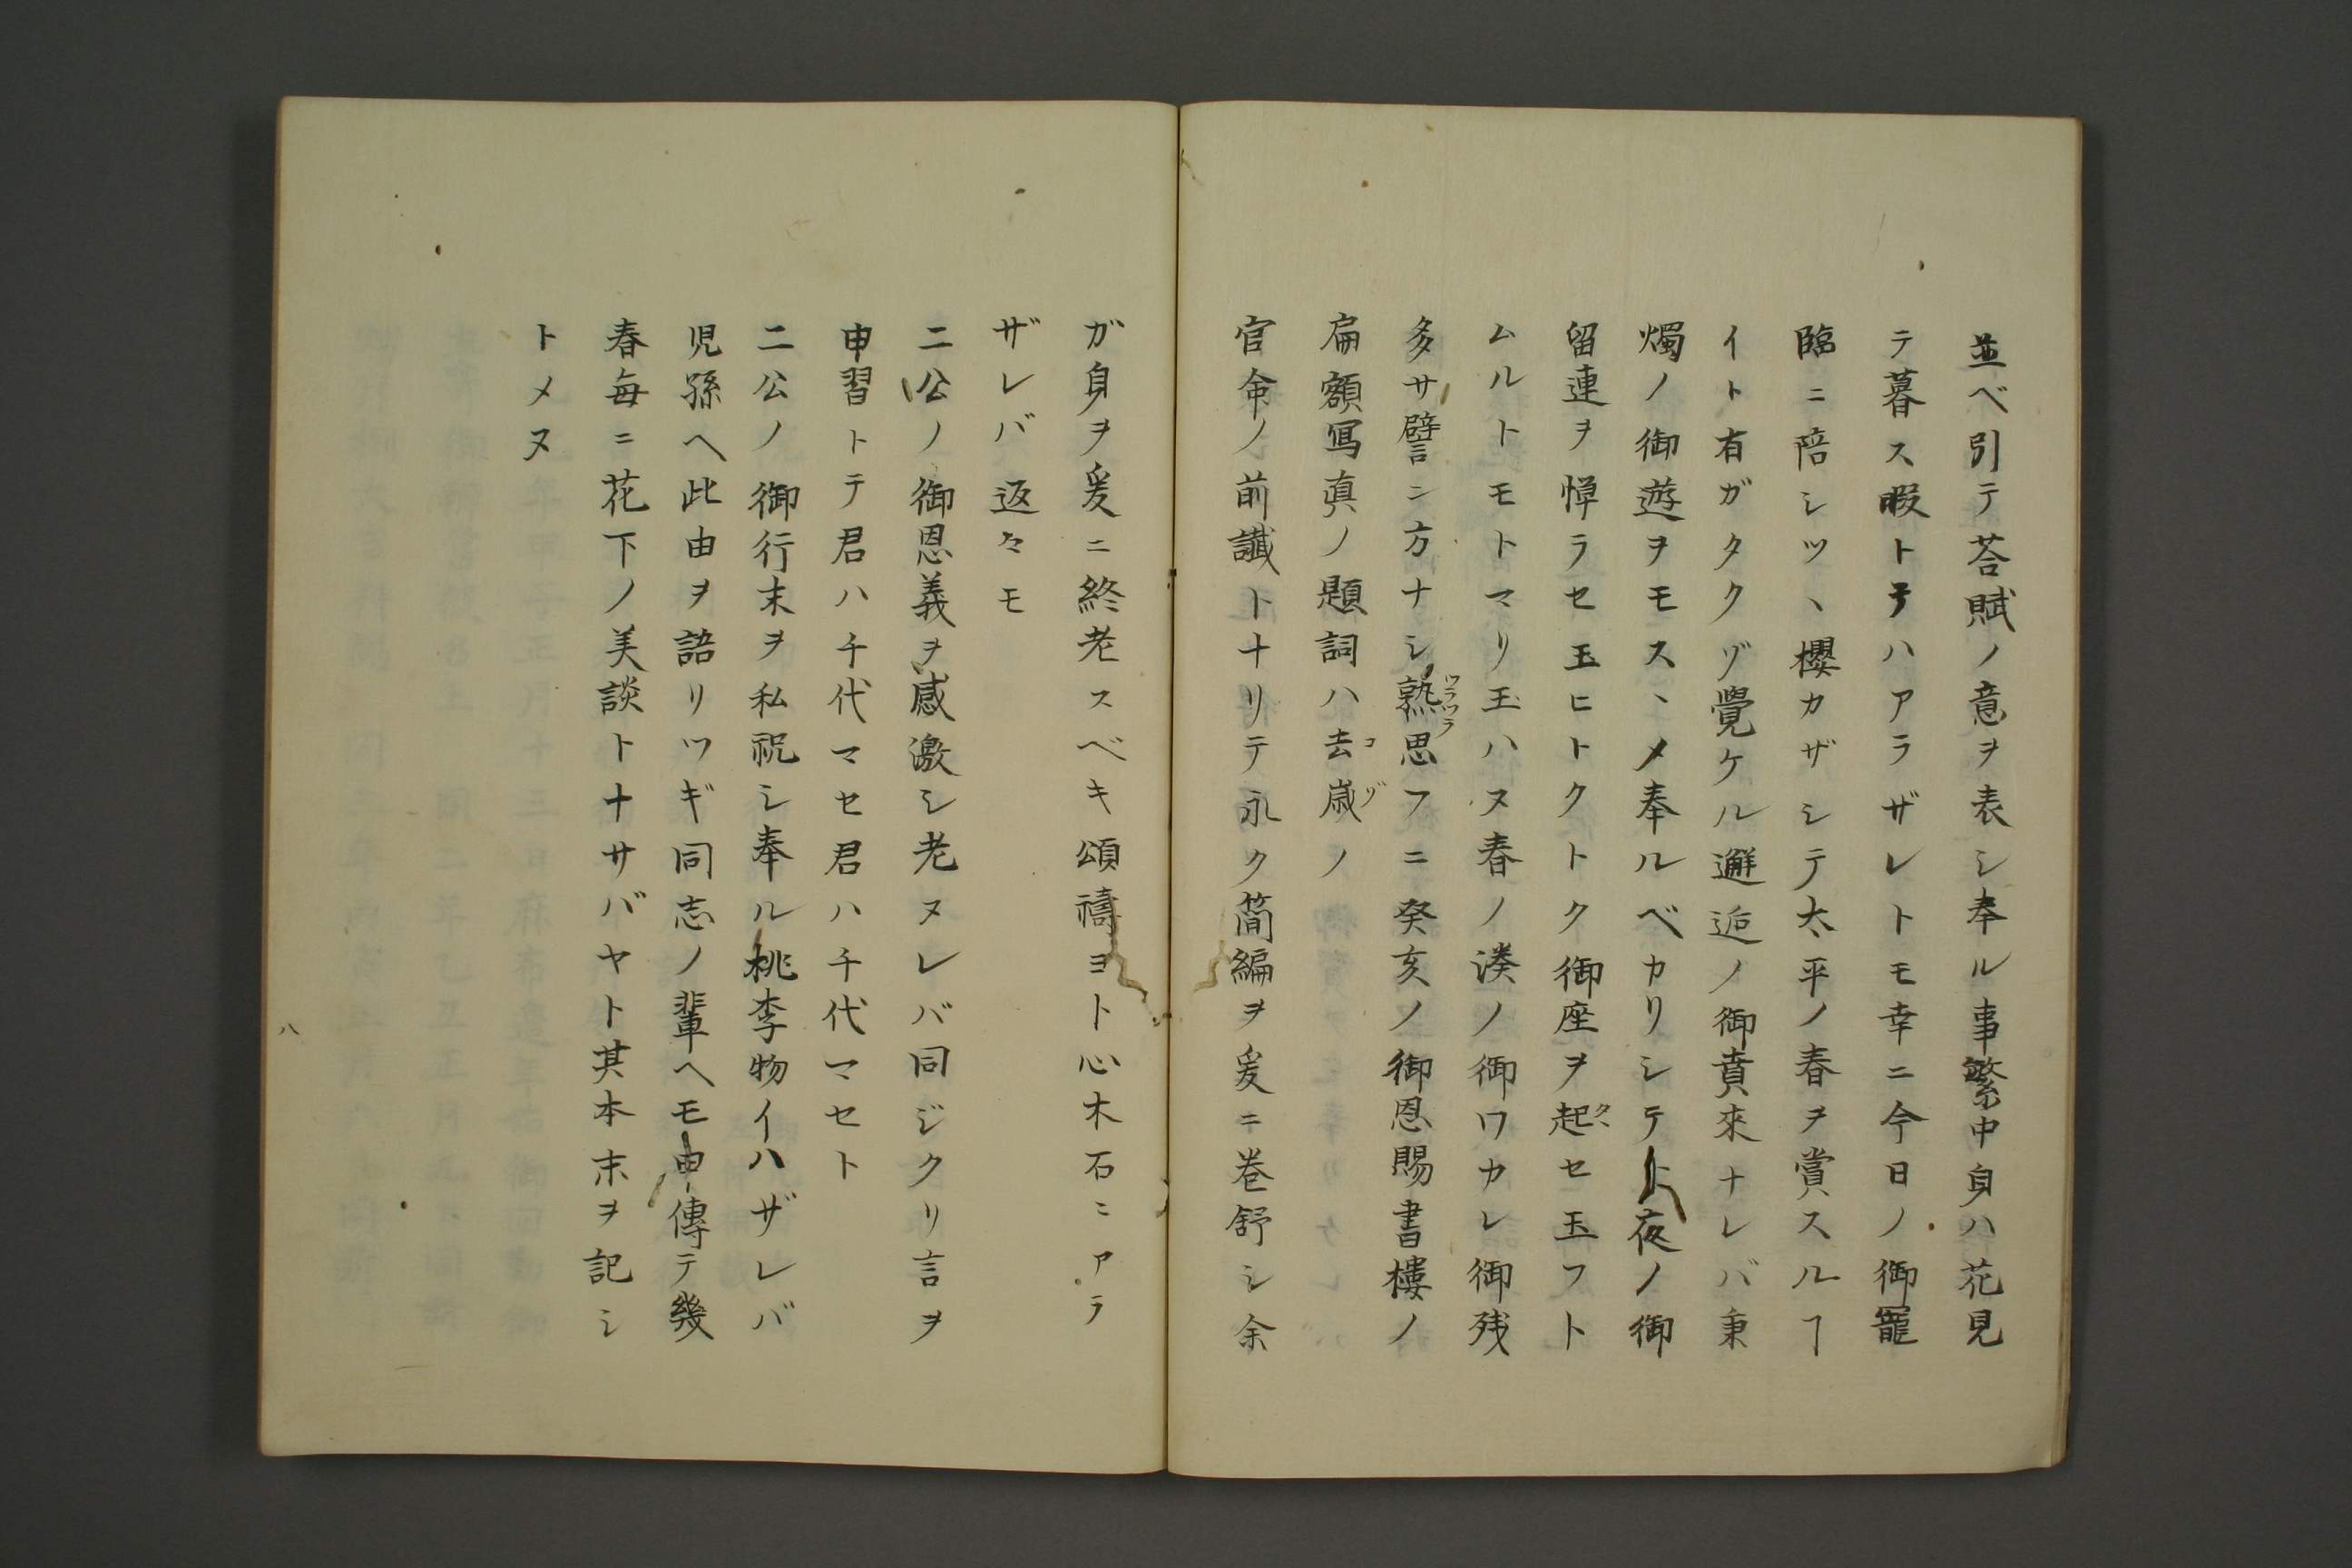 並ベ引テ荅賦ノ意ヲ表シ奉ル事繁中身ハ花見
テ暮ス暇トテハアラザレトモ幸ニ今日ノ御寵
臨ニ陪シツヽ櫻カザシテ太平ノ春ヲ賞スルヿ
イト有ガタクゾ覺ケル邂逅ノ御賁來ナレバ秉
燭ノ御遊ヲモスヽメ奉ルベカリシテト夜ノ御
留連ヲ憚ラセ玉ヒトクトク御座ヲ起タヽセ玉フト
ムルトモトマリ玉ハヌ春ノ湊ノ御ワカレ御残
多サ譬ン方ナシ熟ツラツラ思フニ癸亥ノ御恩賜書樓ノ
扁額冩真ノ題詞ハ去歳コゾノ
官命ノ前讖トナリテ永ク簡編ヲ爰ニ巻舒シ余
ガ身ヲ爰ニ終老スベキ頌禱ヨト心木石ニアラ
ザレバ返々モ
二公ノ御恩義ヲ感激シ老ヌレバ同ジクリ言ヲ
申習トテ君ハ千代マセ君ハ千代マセト
二公ノ御行末ヲ私祝シ奉ル桃李物イハザレバ
児孫ヘ此由ヲ語リツギ同志ノ輩ヘモ申傳テ幾
春毎ニ花下ノ美談トナサバヤト其本末ヲ記シ
トメヌ
八